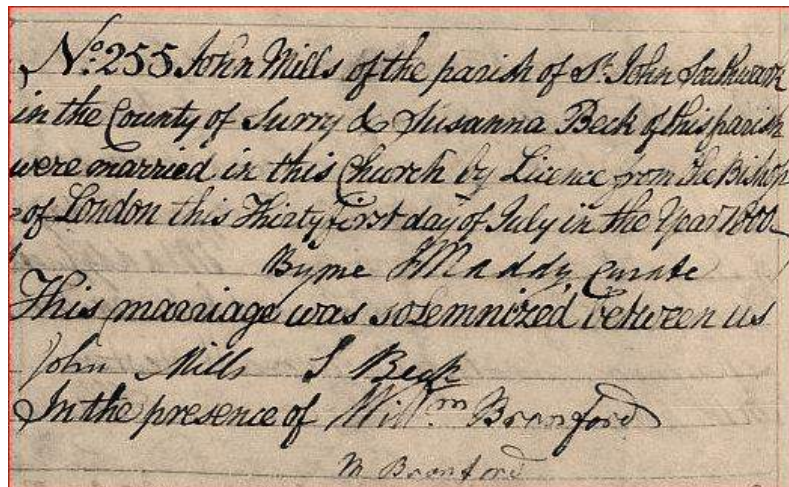 No. 255 John Mills of the parish of St. John Southwark
in the County of Surry & Susanna Beck of this parish
were married in this Church by Licence from the Bishop
of London this Thirty first day of July in the Year 1800
By me J Maddy Curate
This marriage was solemnized between us
John Mills S Beck
In the presence of Willm Branford
M Branford